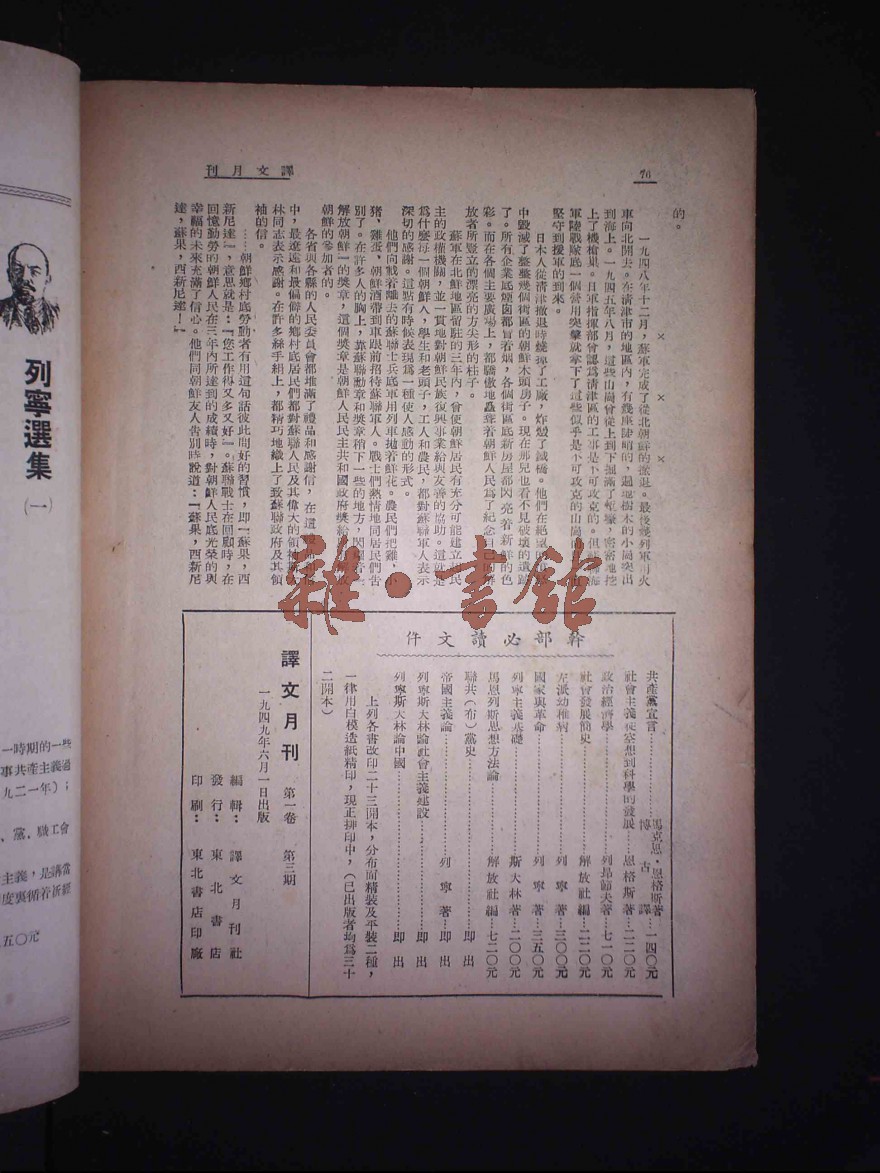 譯文月刊
70
的。
×　×　×
一九四八年十二月，蘇軍完成了從北朝鮮的撤退。最後幾列軍用火
車向北開去。在清津市的地區內，有幾座陡峭的，遍地樹木的小崗突出
到海上。一九四五年八月，這些山崗曾從上到下掘滿了塹壕，密密地挖
上了機槍巢。日軍指揮部曾認爲清津區的工事是不可攻克的。但蘇聯海
軍陸戰隊底一個營用突擊就拿下了這些似乎是不可攻克的山崗
堅守到援軍的到來。
日本人從清津撤退時燒掉了工廠，炸燬了鐵橋。他們在絕望
中毀滅了整整幾個街區的朝鮮木頭房子。現在那兒也看不見破壞的遺跡
了。所有企業底煙囪都冒着烟，各個街區底新房屋都閃亮着新鮮的色
彩。而在各個主要廣場上，都驕傲地矗聳着朝鮮人民爲了紀念自己的解
放者所豎立的漂亮的方尖形的柱子。
蘇軍在北鮮地區留駐的三年內，曾使朝鮮居民有充分可能建立起民
主的政權機關，並一貫地對朝鮮民族復興事業給與友善的協助。這就是
爲什麼每一個朝鮮人，學生和老頭子，工人和農民，都對蘇聯軍人表示
深切的感謝。這點有時候表現爲一種使人感動的形式。
他們向載着離去的蘇聯士兵底軍用列車拋着鮮花。農民們把雞，小
猪，雞蛋，朝鮮酒帶到車跟前招待蘇聯軍人。戰士們熱情地同居民們告
別了。在許多人的胸上，靠蘇聯勳章和獎章稍下一些的地方，閃
解放朝鮮』的獎章，這個獎章是朝鮮人民民主共和國政府獎給
朝鮮的參加者的。
各省與各縣的人民委員會都堆滿了禮品和感謝信，在這
中，最遼遠和最偏僻的鄉村底居民們都對蘇聯人民及其偉大的領袖
林同志表示感謝。在許多絲手絹上，都精巧地織上了致蘇聯政府及其領
袖的信。
……朝鮮鄉村底勞動者有用這句話彼此問好的習慣，即『蘇果，西
新尼達』，意思就是：『您工作得又多又好』。蘇聯戰士在回顧時，在
回憶勤勞的朝鮮人民在三年內所達到的成績時，對朝鮮人民底光榮的與
幸福的未來充滿了信心。他們同朝鮮友人告別時說道：『蘇果，西新尼
達，蘇果，西新尼達！』
雜·書館
幹部必讀文件
共產黨宣言……馬克思，恩格斯著 博古譯…一四〇元
社會主義從空想到科學的發展…恩格斯著…一二〇元
政治經濟學……列昂節夫著…七一〇元
社會發展簡史……解放社編…二二〇元
左派幼稚病……列寧著…三〇〇元
國家與革命……列寧著…三五〇元
列寧主義基礎……斯大林著…二〇〇元
馬恩列斯思想方法論……解放社編…七二〇元
聯共（布）黨史……即出
帝國主義論……列寧著…即出
列寧斯大林論社會主義建設……即出
列寧斯大林論中國……即出
上列各書改印二十三開本，分布面精裝及平裝二種，
一律用白模造紙精印，現正排印中，（已出版者均爲三十
二開本）
譯文月刊 第一卷 第三期
一九四九年六月一日出版
編輯：譯文月刊社
發行：東北書店
印刷：東北書店印廠
列寧選集（一）
一時期的一些
事共產主義過
九二一年）；
、黨、職工會
主義，是講當
度裏循着新經
五〇元